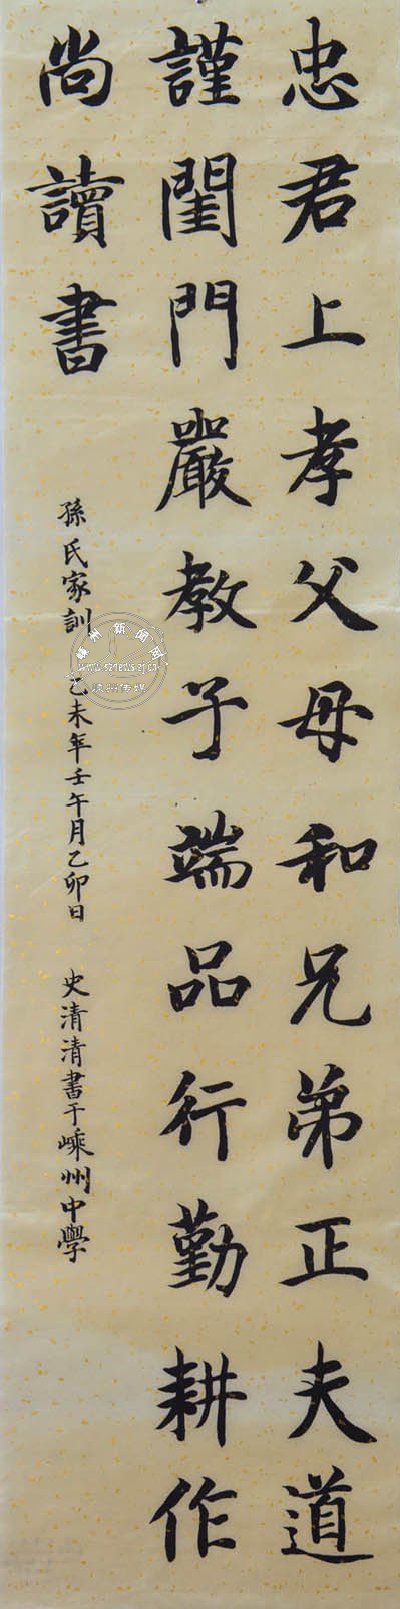 忠君上孝父母和兄弟正夫道
謹閨門嚴教子端品行勤耕作
尚讀書
孫氏家訓 乙未年壬午月乙卯日 史清清書于嵊州中學
嵊州新闻网
www.sznews.zj.cn